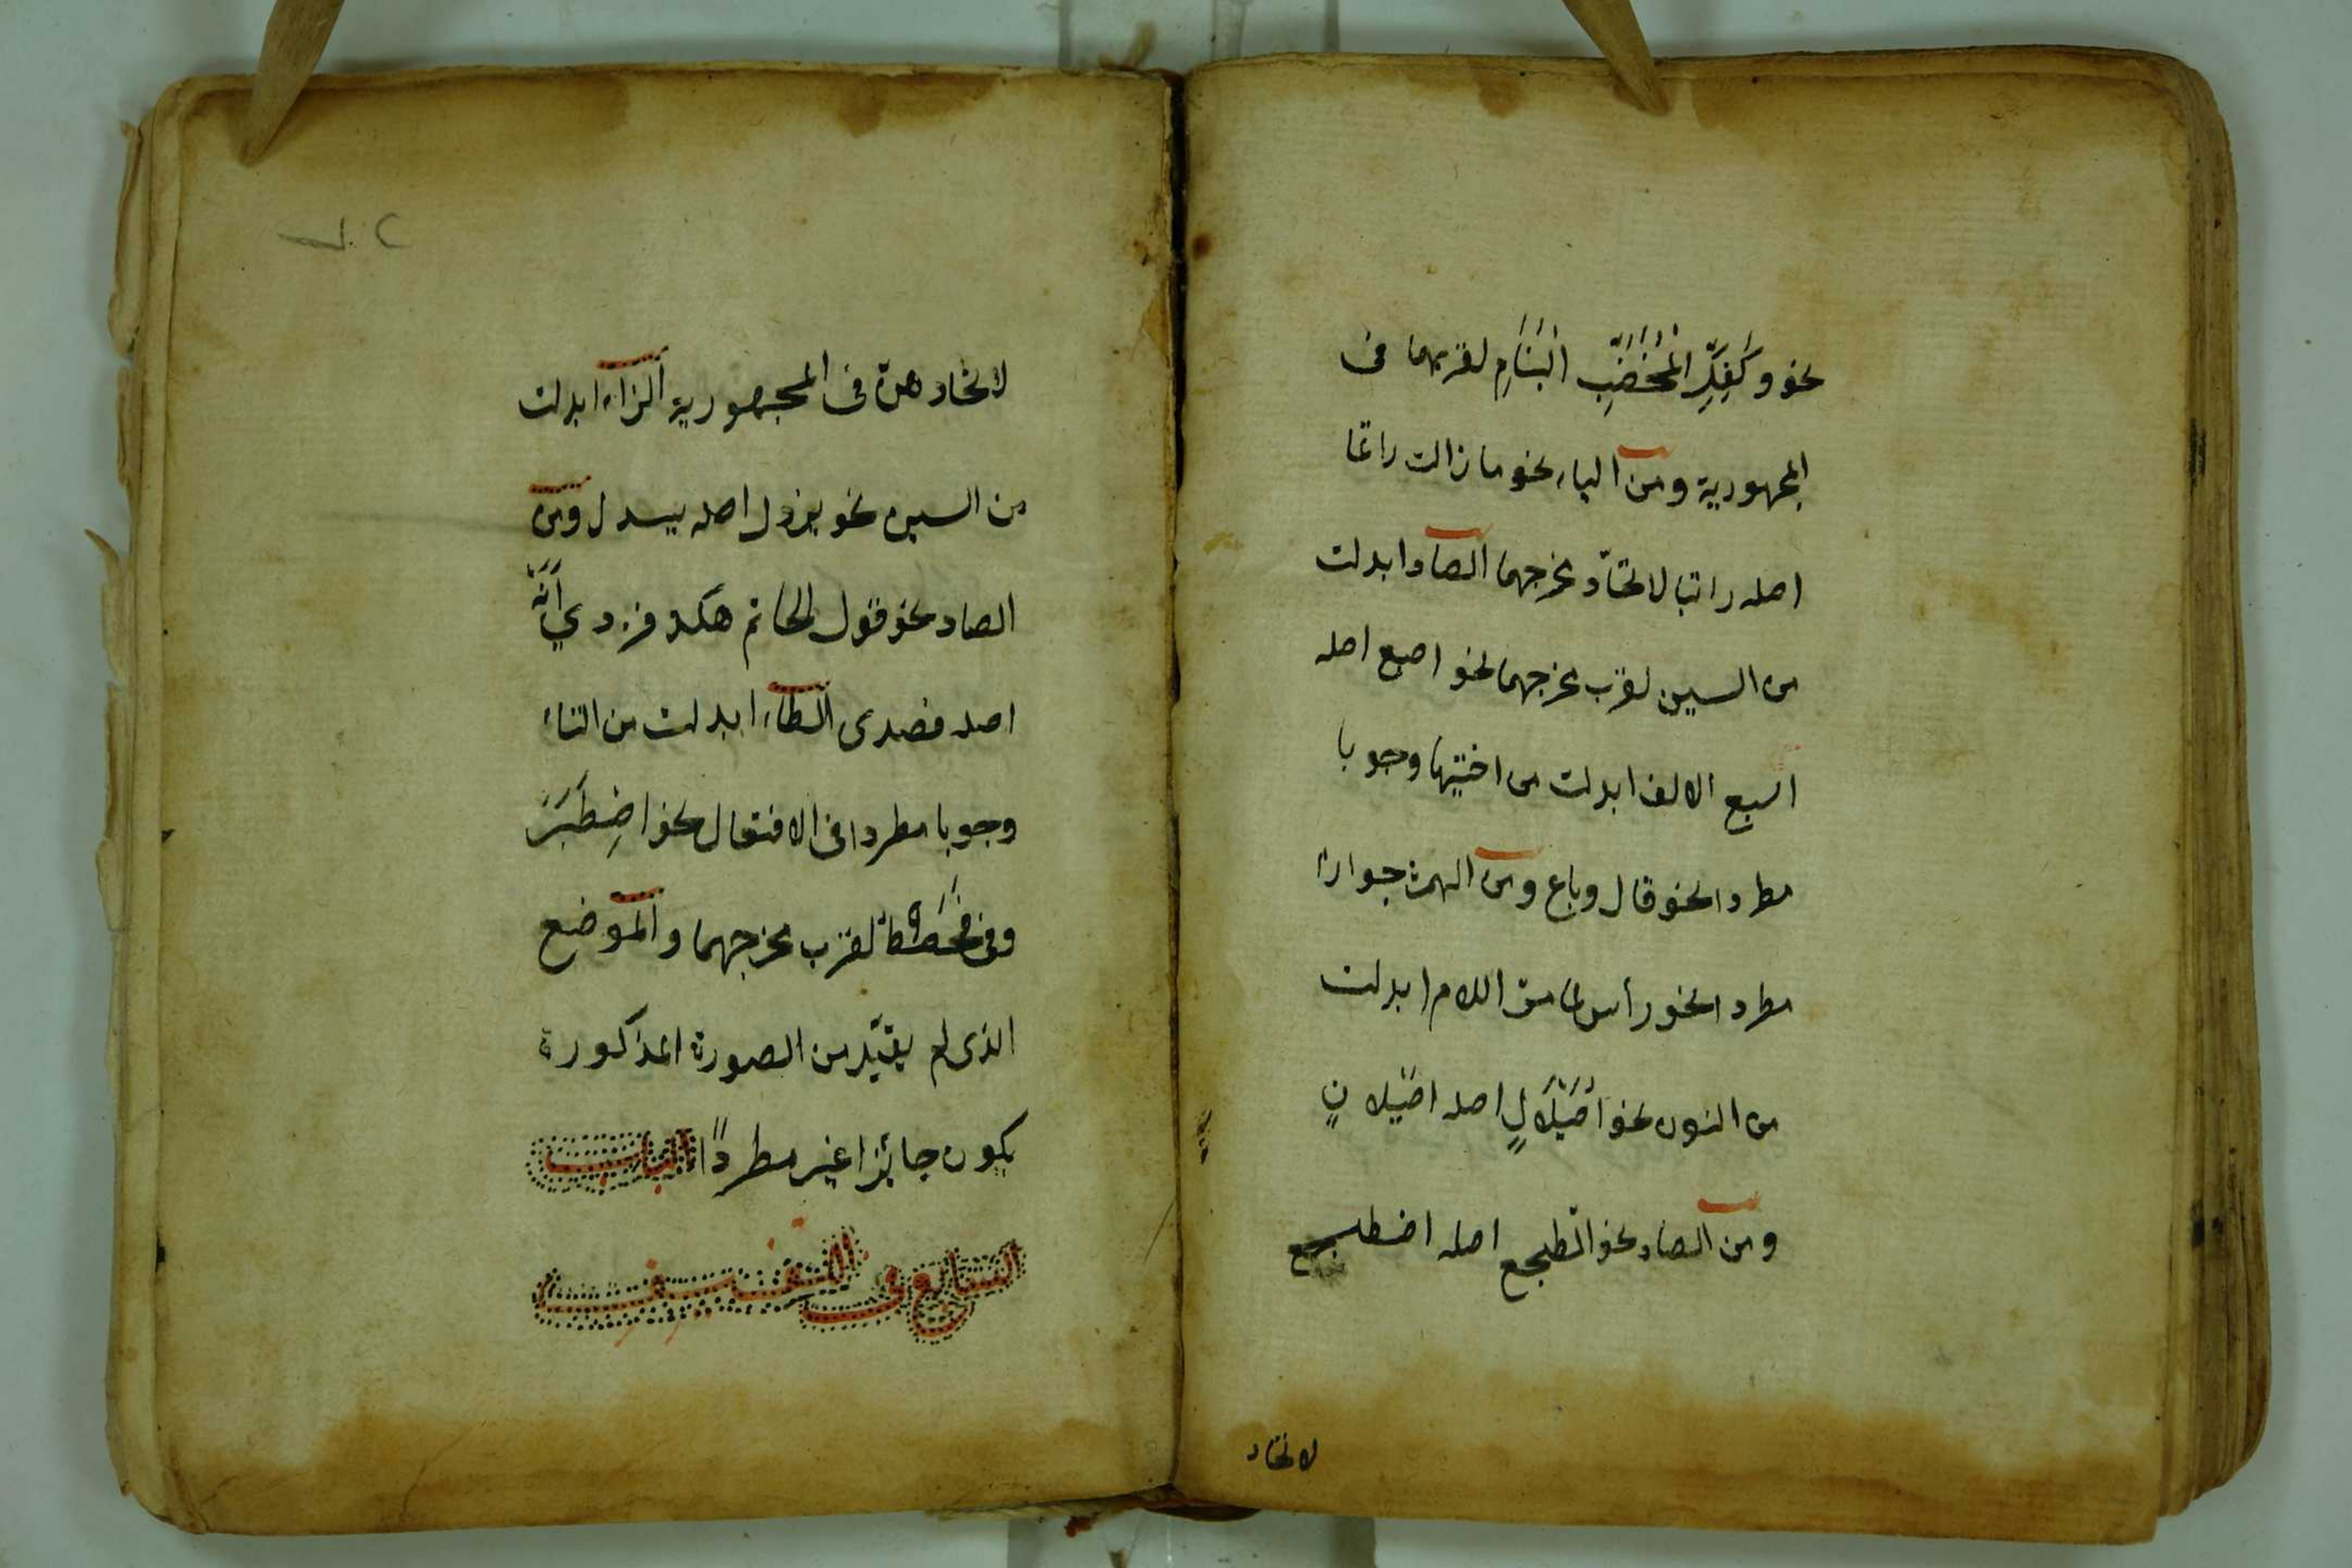 نحو وَكَفِكِّ الْمُخَضَّبِ الْبَنَامِ لقربهما فى
المجهورية ومن الباء نحو ما زالت راتما
اصله راتبا لاتحاد مخرجهما الصاد ابدلت
من السين لقرب مخرجهما نحو اصبع اصله
اسبع الالف ابدلت من اختيها وجوبا
مطردا نحو قال وباع ومن الهمزة جوازا
مطردا نحو راس لما مرّ اللام ابدلت
من النون نحو اُصَيْلَالٍ اصله اصَيْلانٍ
ومن الضاد نحو الطجع اصله اضطجع
لاتحاد
لاتحادهن فى المجهورية الزاء ابدلت
من السين نحو يزدل اصله يسدل ومن
الصاد نحو قول الحاتم هكذ فزدي اَنَهْ
اصله فصدى الطاء ابدلت من التاء
وجوبا مطردا فى الافتعال نحو اضِطَبَرَ
وفى فَحَصْطُ لقرب مخرجهما والموضع
الذى لم يقيّد من الصورة المذكورة
يكون جائزا غير مطردًا الباب
السابع فى اللفيف